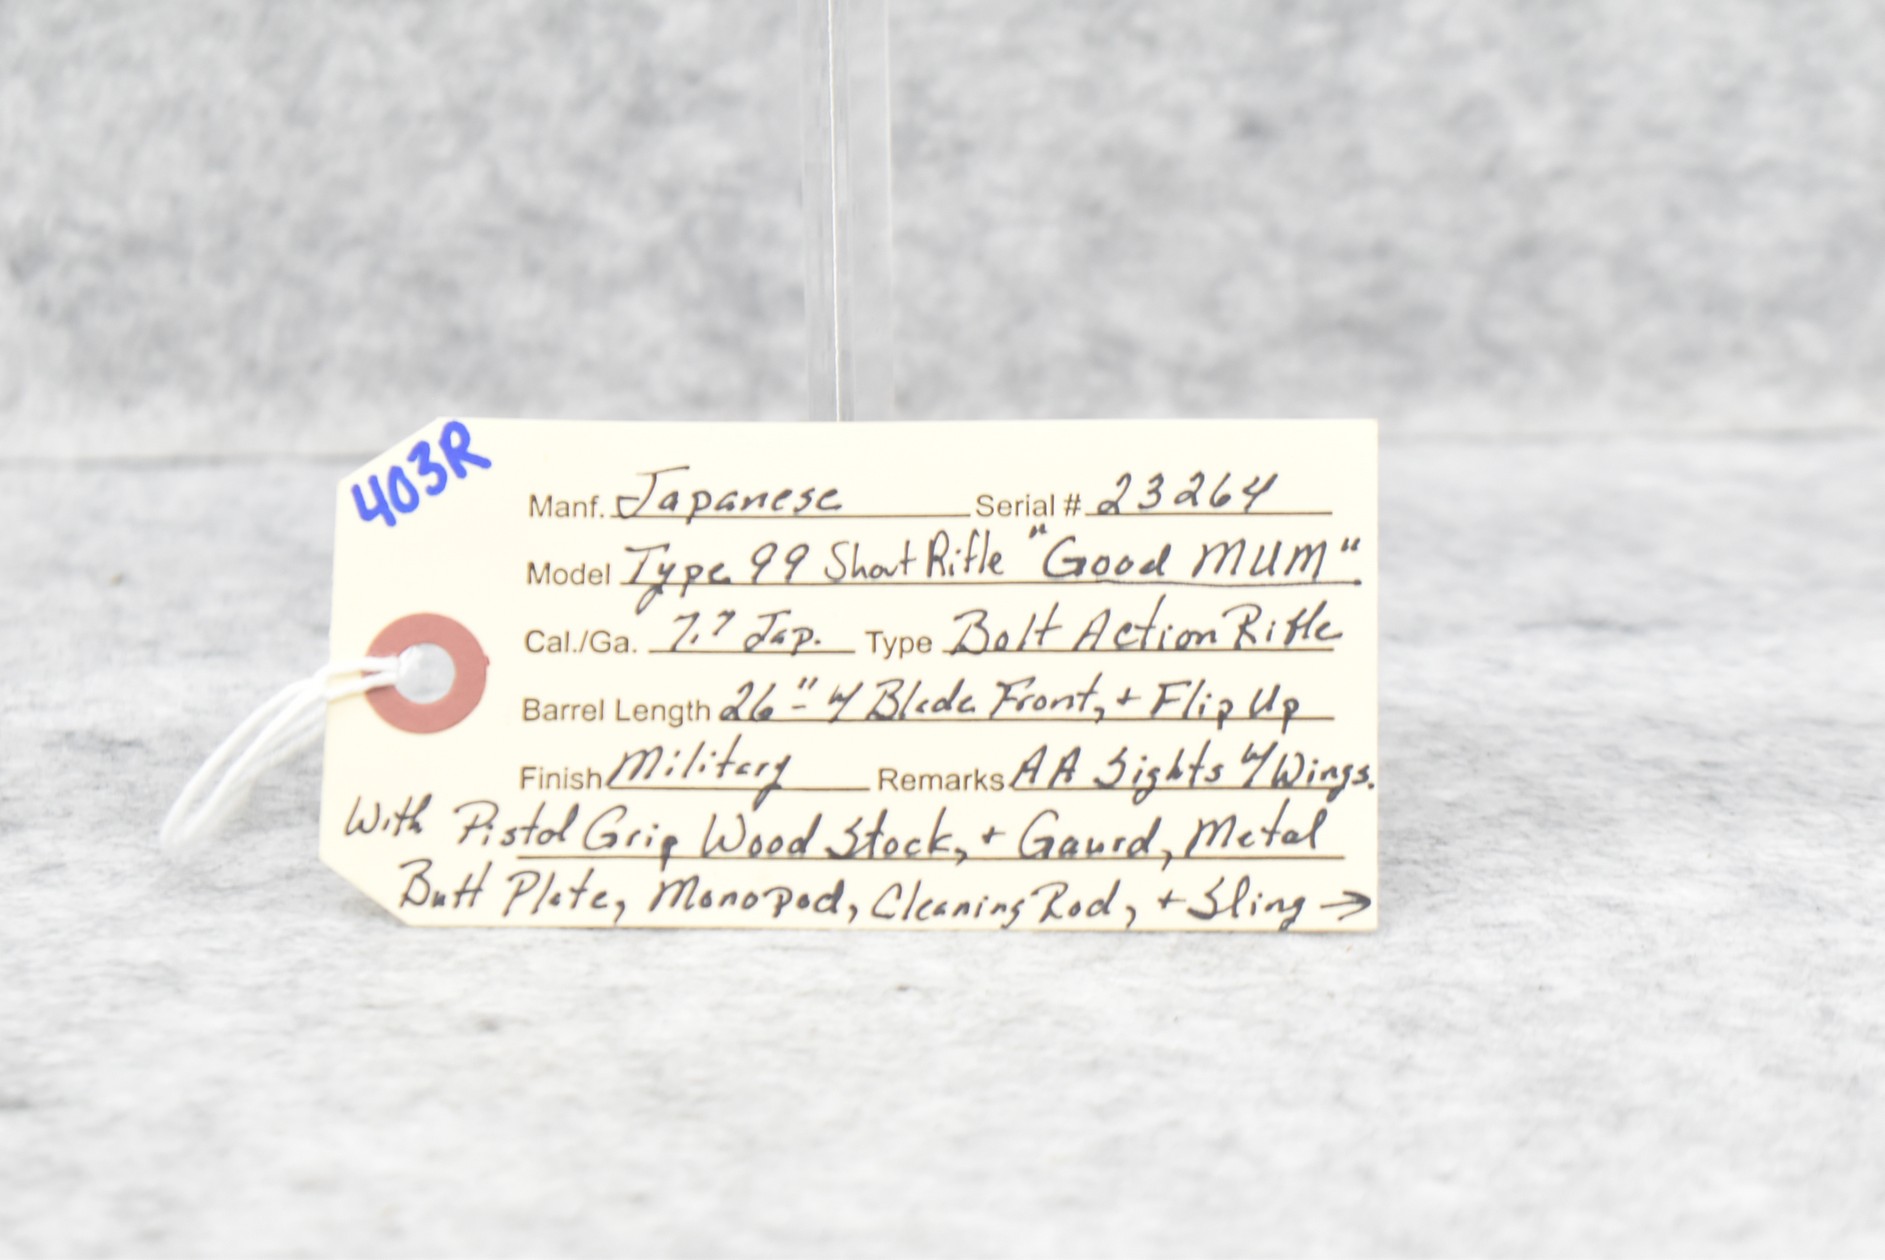 403R
Manf. Japanese Serial # 23264
Model Type 99 Short Rifle "Good MUM".
Cal./Ga. 7.7 Jap. Type Bolt Action Rifle
Barrel Length 26" - w/ Blade Front, + Flip Up
Finish Military Remarks AA Sights w/ Wings.
With Pistol Grip Wood Stock, + Gaurd, Metal
Butt Plate, Monopod, Cleaning Rod, + Sling →